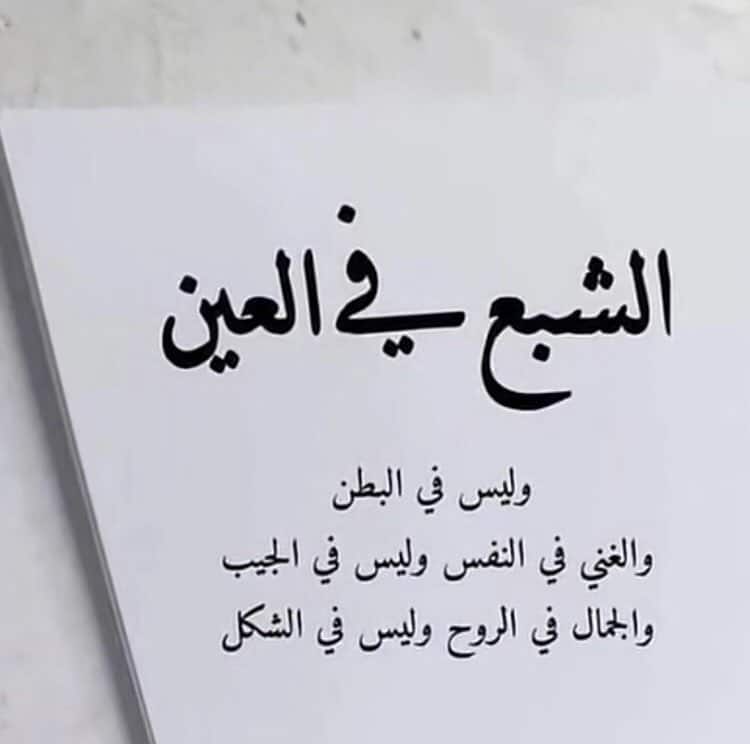 الشبع في العين
وليس في البطن
والغني في النفس وليس في الجيب
والجمال في الروح وليس في الشكل